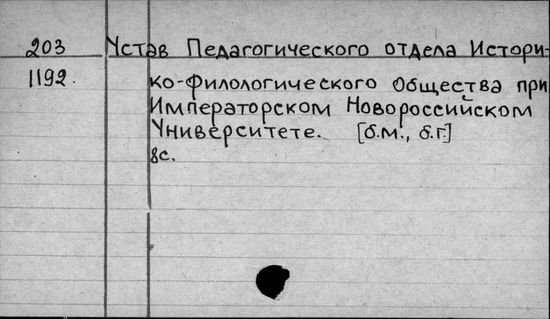 203 Устав Педагогического отдела Истори-
1192. ко-филологического Общества при
Императорском Новороссийском
Университете. [б.м., б.г.]
8с.